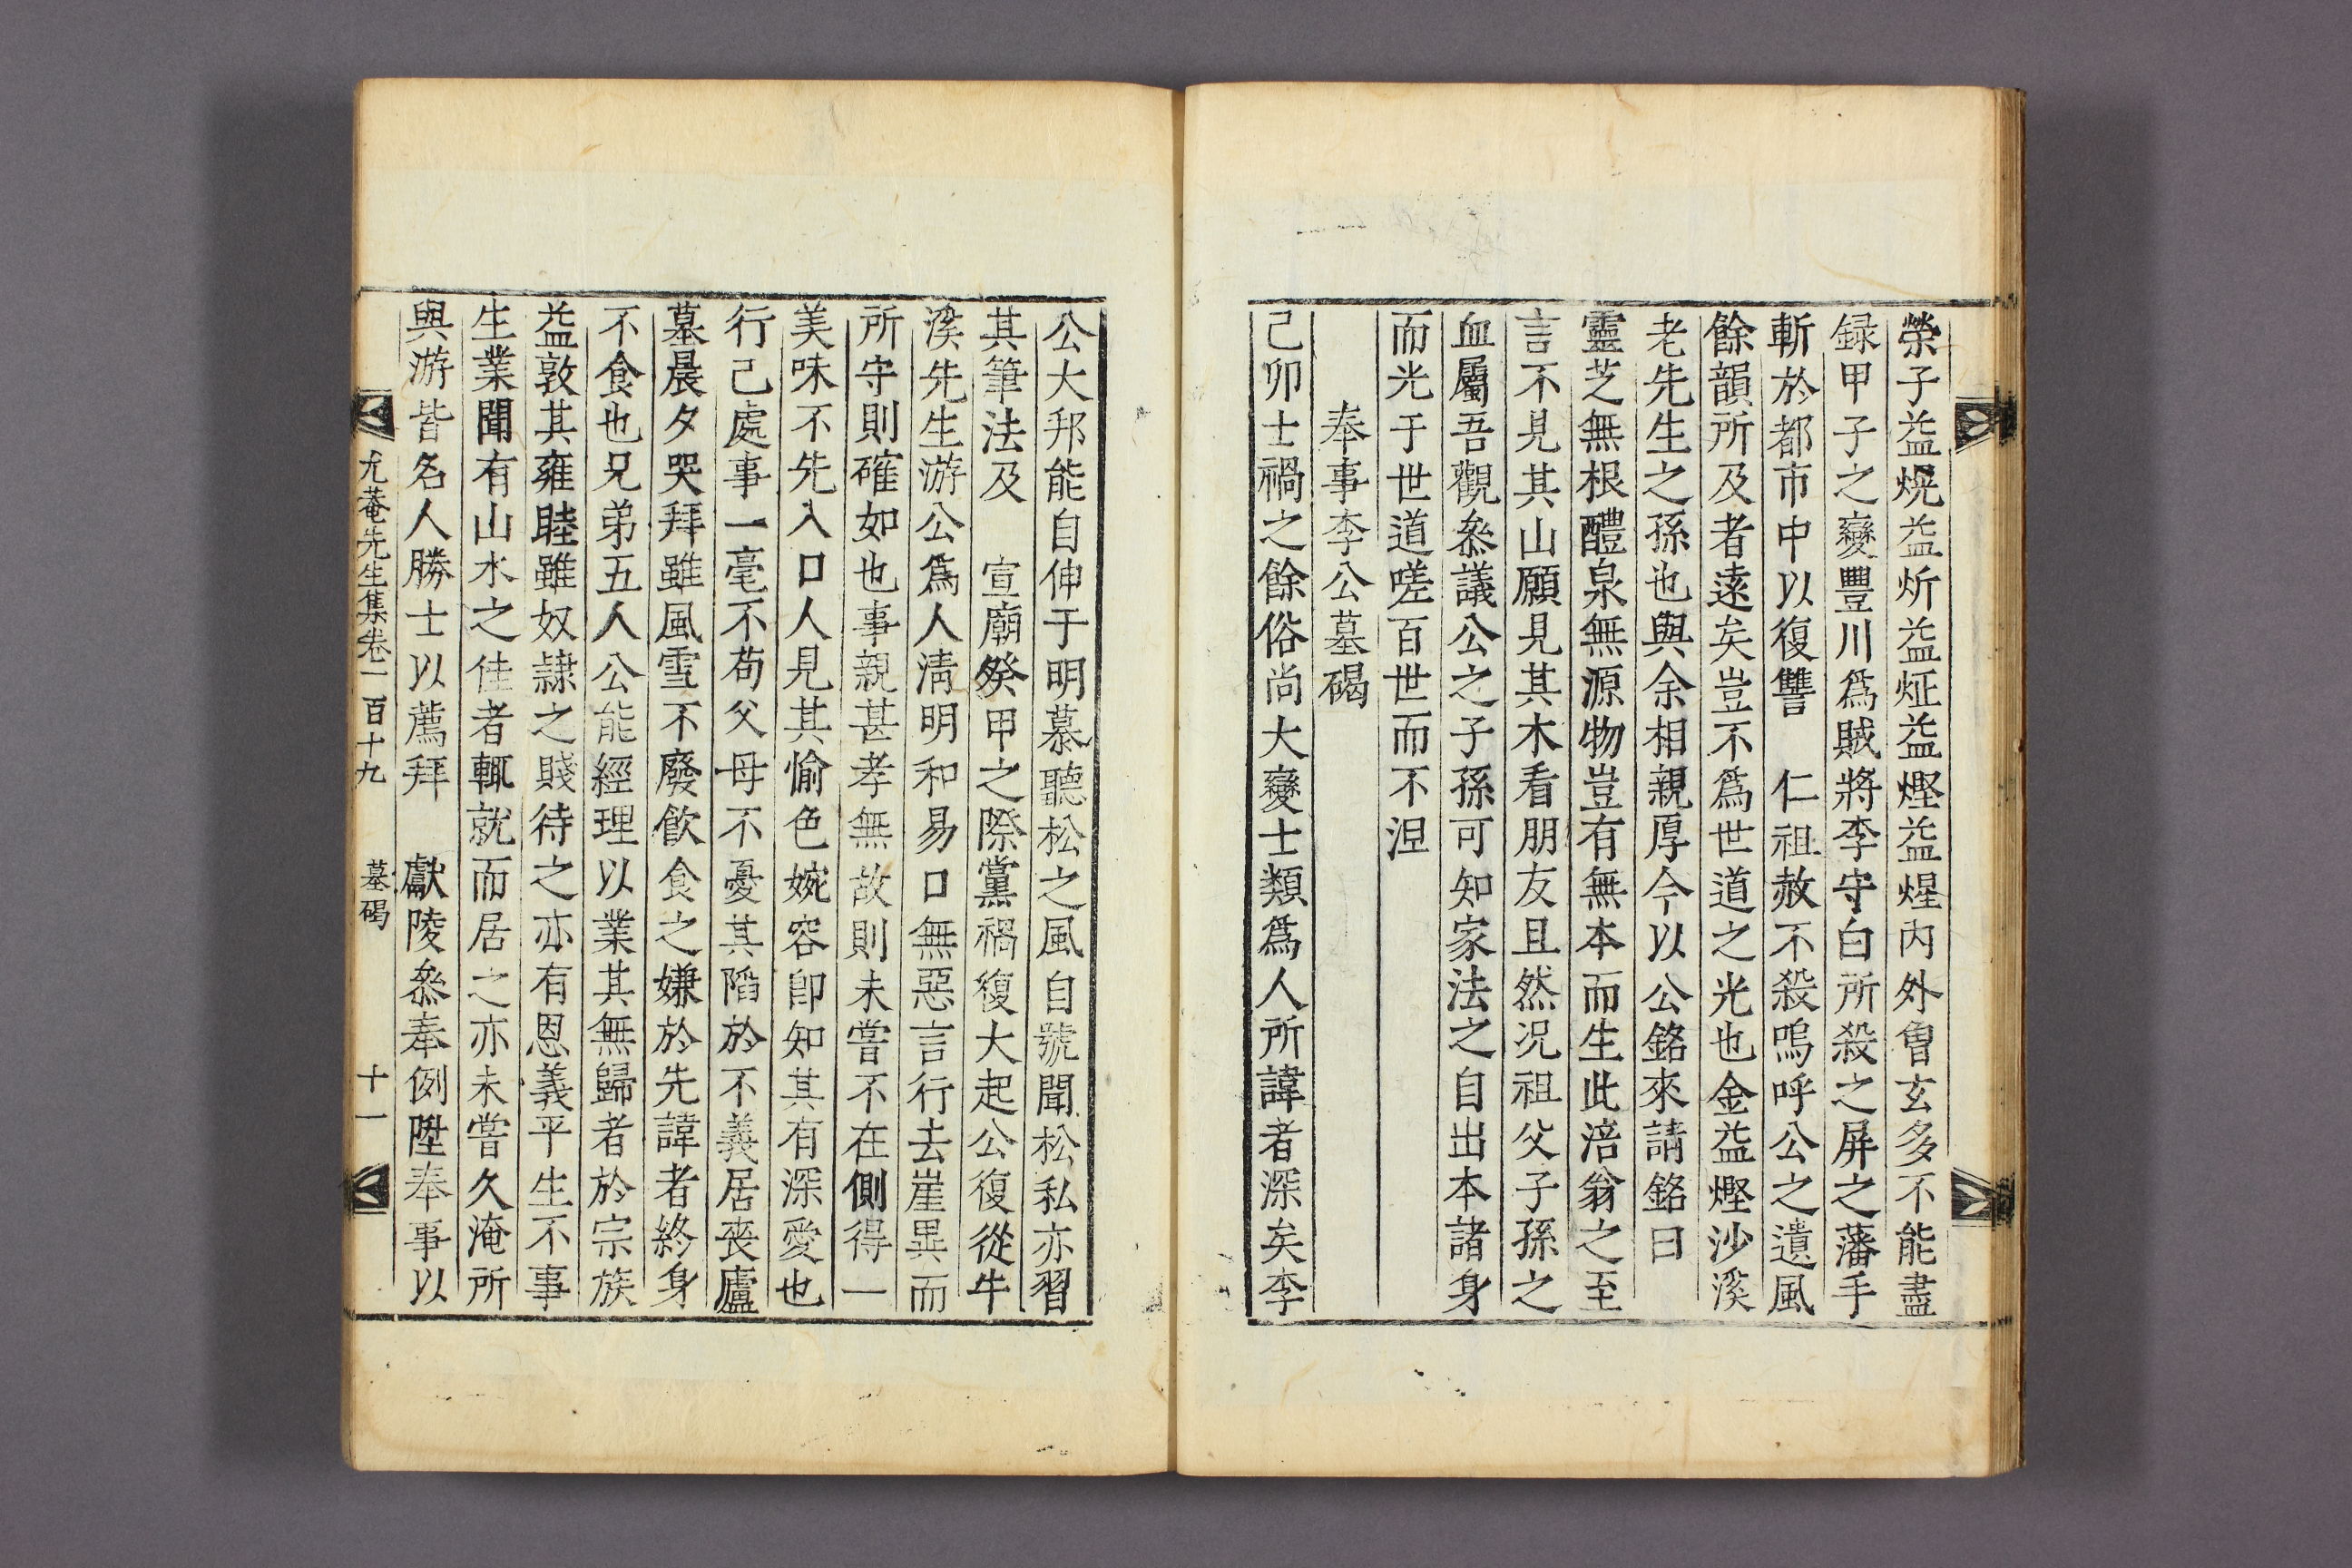 榮子益熀益炘益炡益熞益煋內外曾玄多不能盡
録甲子之變豐川爲賊將李守白所殺之屏之藩手
斬於都市中以復讐 仁祖赦不殺嗚呼公之遺風
餘韻所及者遠矣豈不爲世道之光也金益熞沙溪
老先生之孫也與余相親厚今以公銘來請銘曰
靈芝無根醴泉無源物豈有無本而生此涪翁之至
言不見其山願見其木看朋友且然况祖父子孫之
血屬吾觀叅議公之子孫可知家法之自出本諸身
而光于世道嗟百世而不涅
奉事李公墓碣
己卯士禍之餘俗尚大變士類爲人所諱者深矣李
公大邦能自伸于明慕聽松之風自號聞松私亦習
其筆法及 宣廟癸甲之際黨禍復大起公復從牛
溪先生游公爲人淸明和易口無惡言行去崖異而
所守則確如也事親甚孝無故則未嘗不在側得一
美味不先入口人見其愉色婉容卽知其有深愛也
行己處事一毫不苟父母不憂其陷於不義居喪廬
墓晨夕哭拜雖風雪不廢飮食之嫌於先諱者終身
不食也兄弟五人公能經理以業其無歸者於宗族
益敦其雍睦雖奴隷之賤待之亦有恩義平生不事
生業聞有山水之佳者輒就而居之亦未嘗久淹所
與游皆名人勝士以薦拜 獻陵叅奉例陞奉事以
尤菴先生集卷一百十九 墓碣 十一